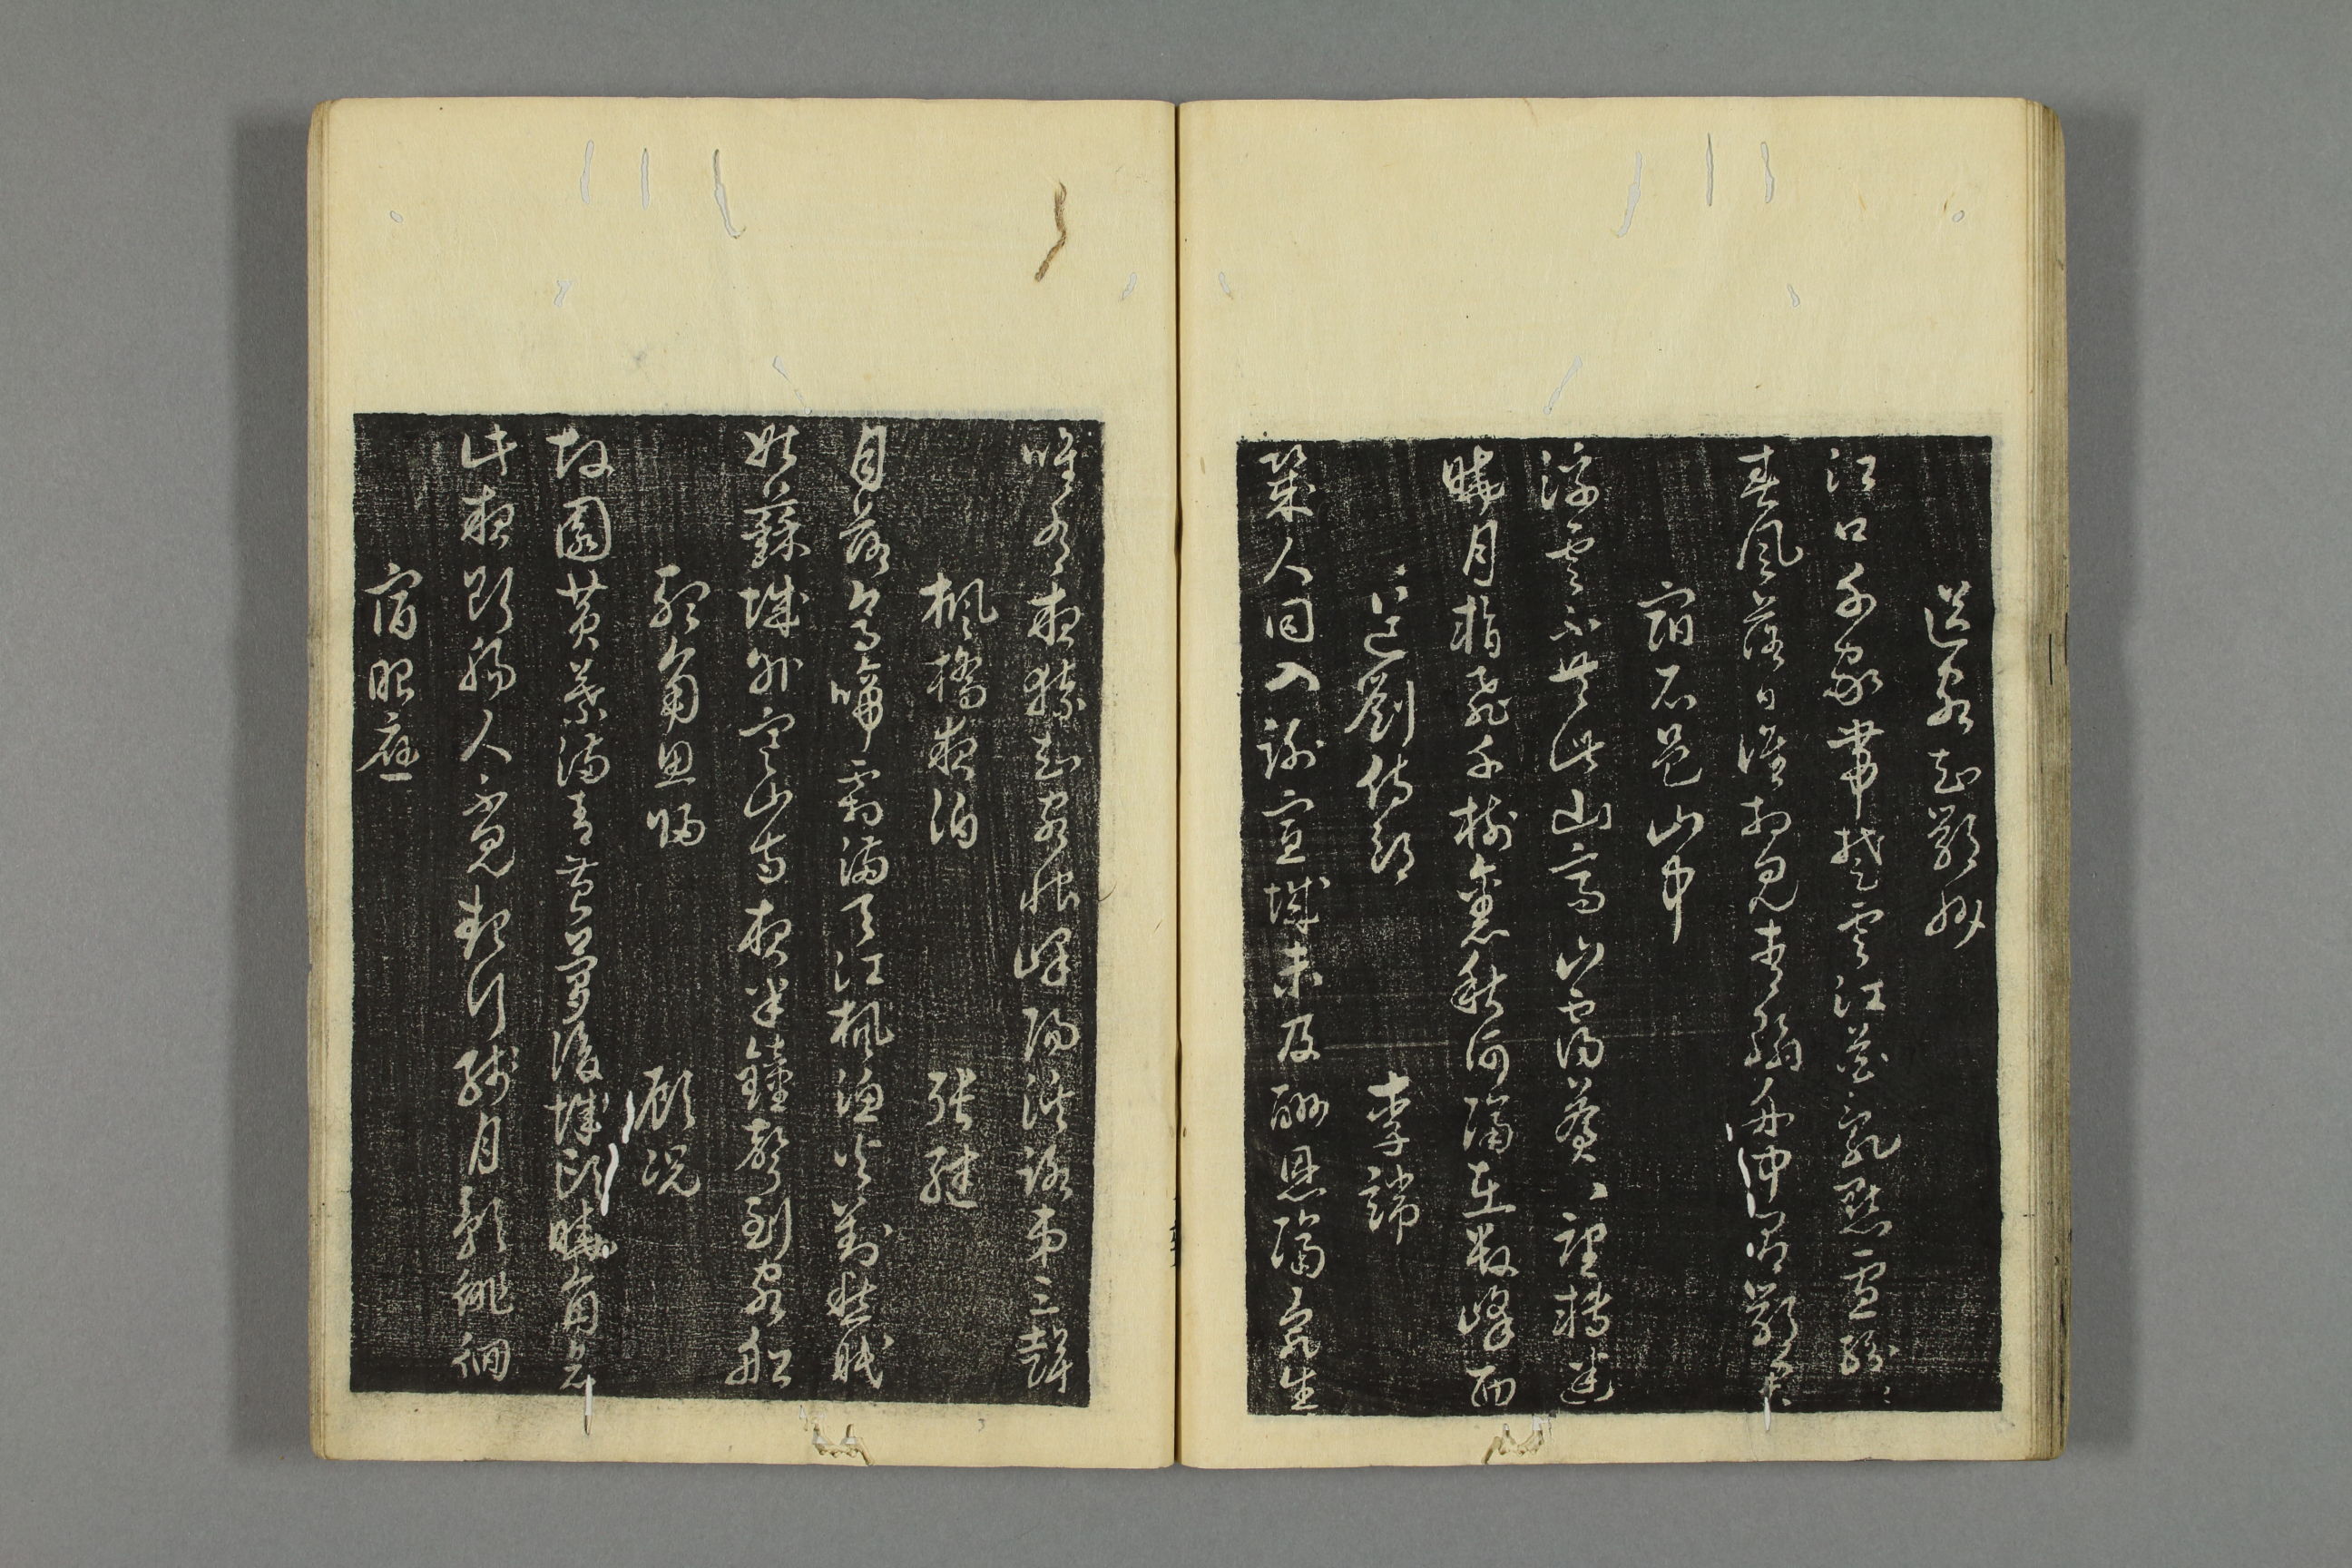 送客知鄂州
江口千家帶楚雲江花亂點雪紛〻
春風落日誰相見青翰舟中有鄂君
宿石邑山中
浮雲不共此山齊山靄蒼〻望轉迷
曉月暫飛千樹裏秋河隔在數峰西
送劉侍郎 李端
幾人同入謝宣城未及酬恩隔死生
唯有夜猿知客恨嶧陽溪路第三聲
楓橋夜泊 張繼
月落烏啼霜滿天江楓漁火對愁眠
姑蘇城外寒山寺夜半鐘聲到客船
聽角思歸 顧況
故園黃葉滿青苔夢後城頭曉角哀
此夜斷腸人不見起行殘月影徘徊
宿昭應